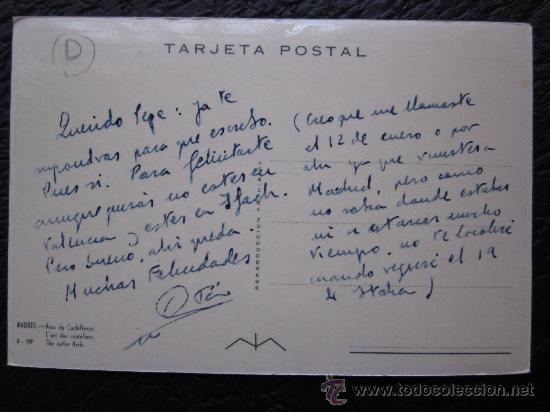 D
TARJETA POSTAL
Querido Pepe: ya te
supondras para que escribo.
Pues si. Para felicitarte
aunque quizás no estes en
Valencia y estes en
Pero bueno, ahi queda.
Muchas Felicidades
(Creo que me llamaste
el 12 de enero o por
ahi ya que viniste a
Madrid, pero como
no sabia donde estabas
ni a estarias mucho
tiempo, no te localicé
cuando regresé el 19
de Italia)
REPRODUCCION PROHIBIDA
MADRID.—Arco de Cuchilleros.
L'arc des couteliers.
A - 119 The cutler Arch.
todocoleccion.net